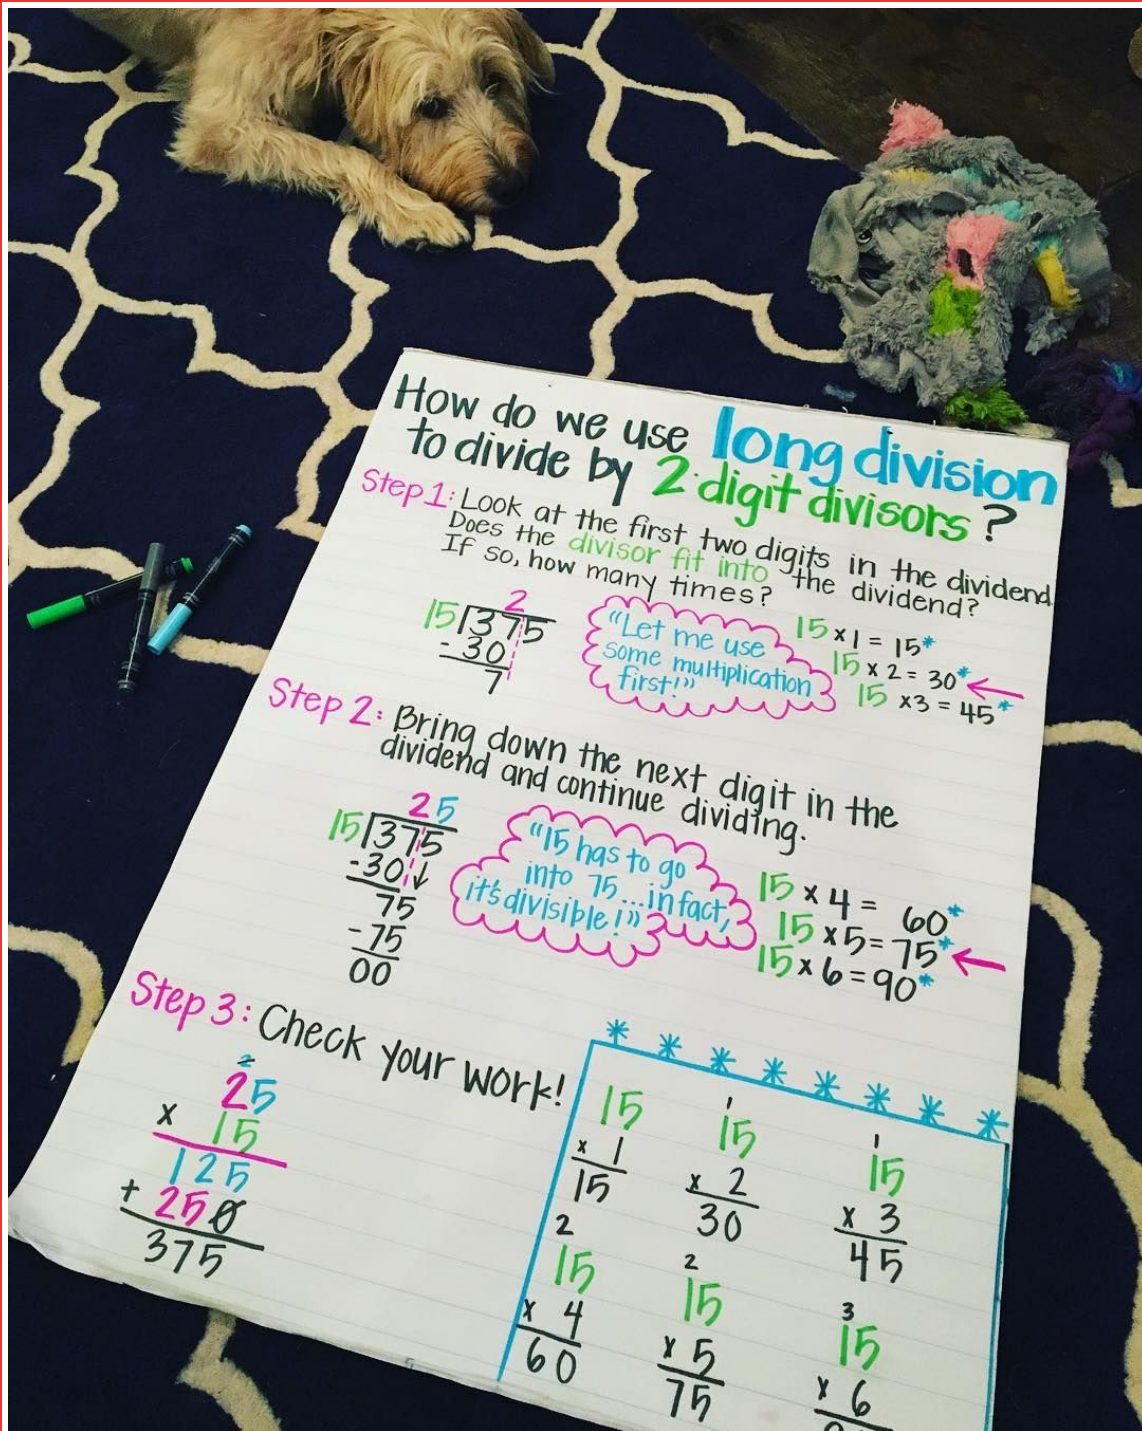 How do we use long division
to divide by 2-digit divisors?
Step 1: Look at the first two digits in the dividend.
Does the divisor fit into the dividend?
If so, how many times?
2
15)375
-30
7
"Let me use
some multiplication
first!"
15 x 1 = 15*
15 x 2 = 30*
15 x 3 = 45*
Step 2: Bring down the next digit in the
dividend and continue dividing.
25
15)375
-30↓
75
-75
00
"15 has to go
into 75...in fact,
it's divisible!"
15 x 4 = 60*
15 x 5 = 75*
15 x 6 = 90*
Step 3: Check your work!
2
25
x 15
125
+ 250
375
* * * * * * * *
15
x 1
15
1
15
x 2
30
1
15
x 3
45
2
15
x 4
60
2
15
x 5
75
3
15
x 6